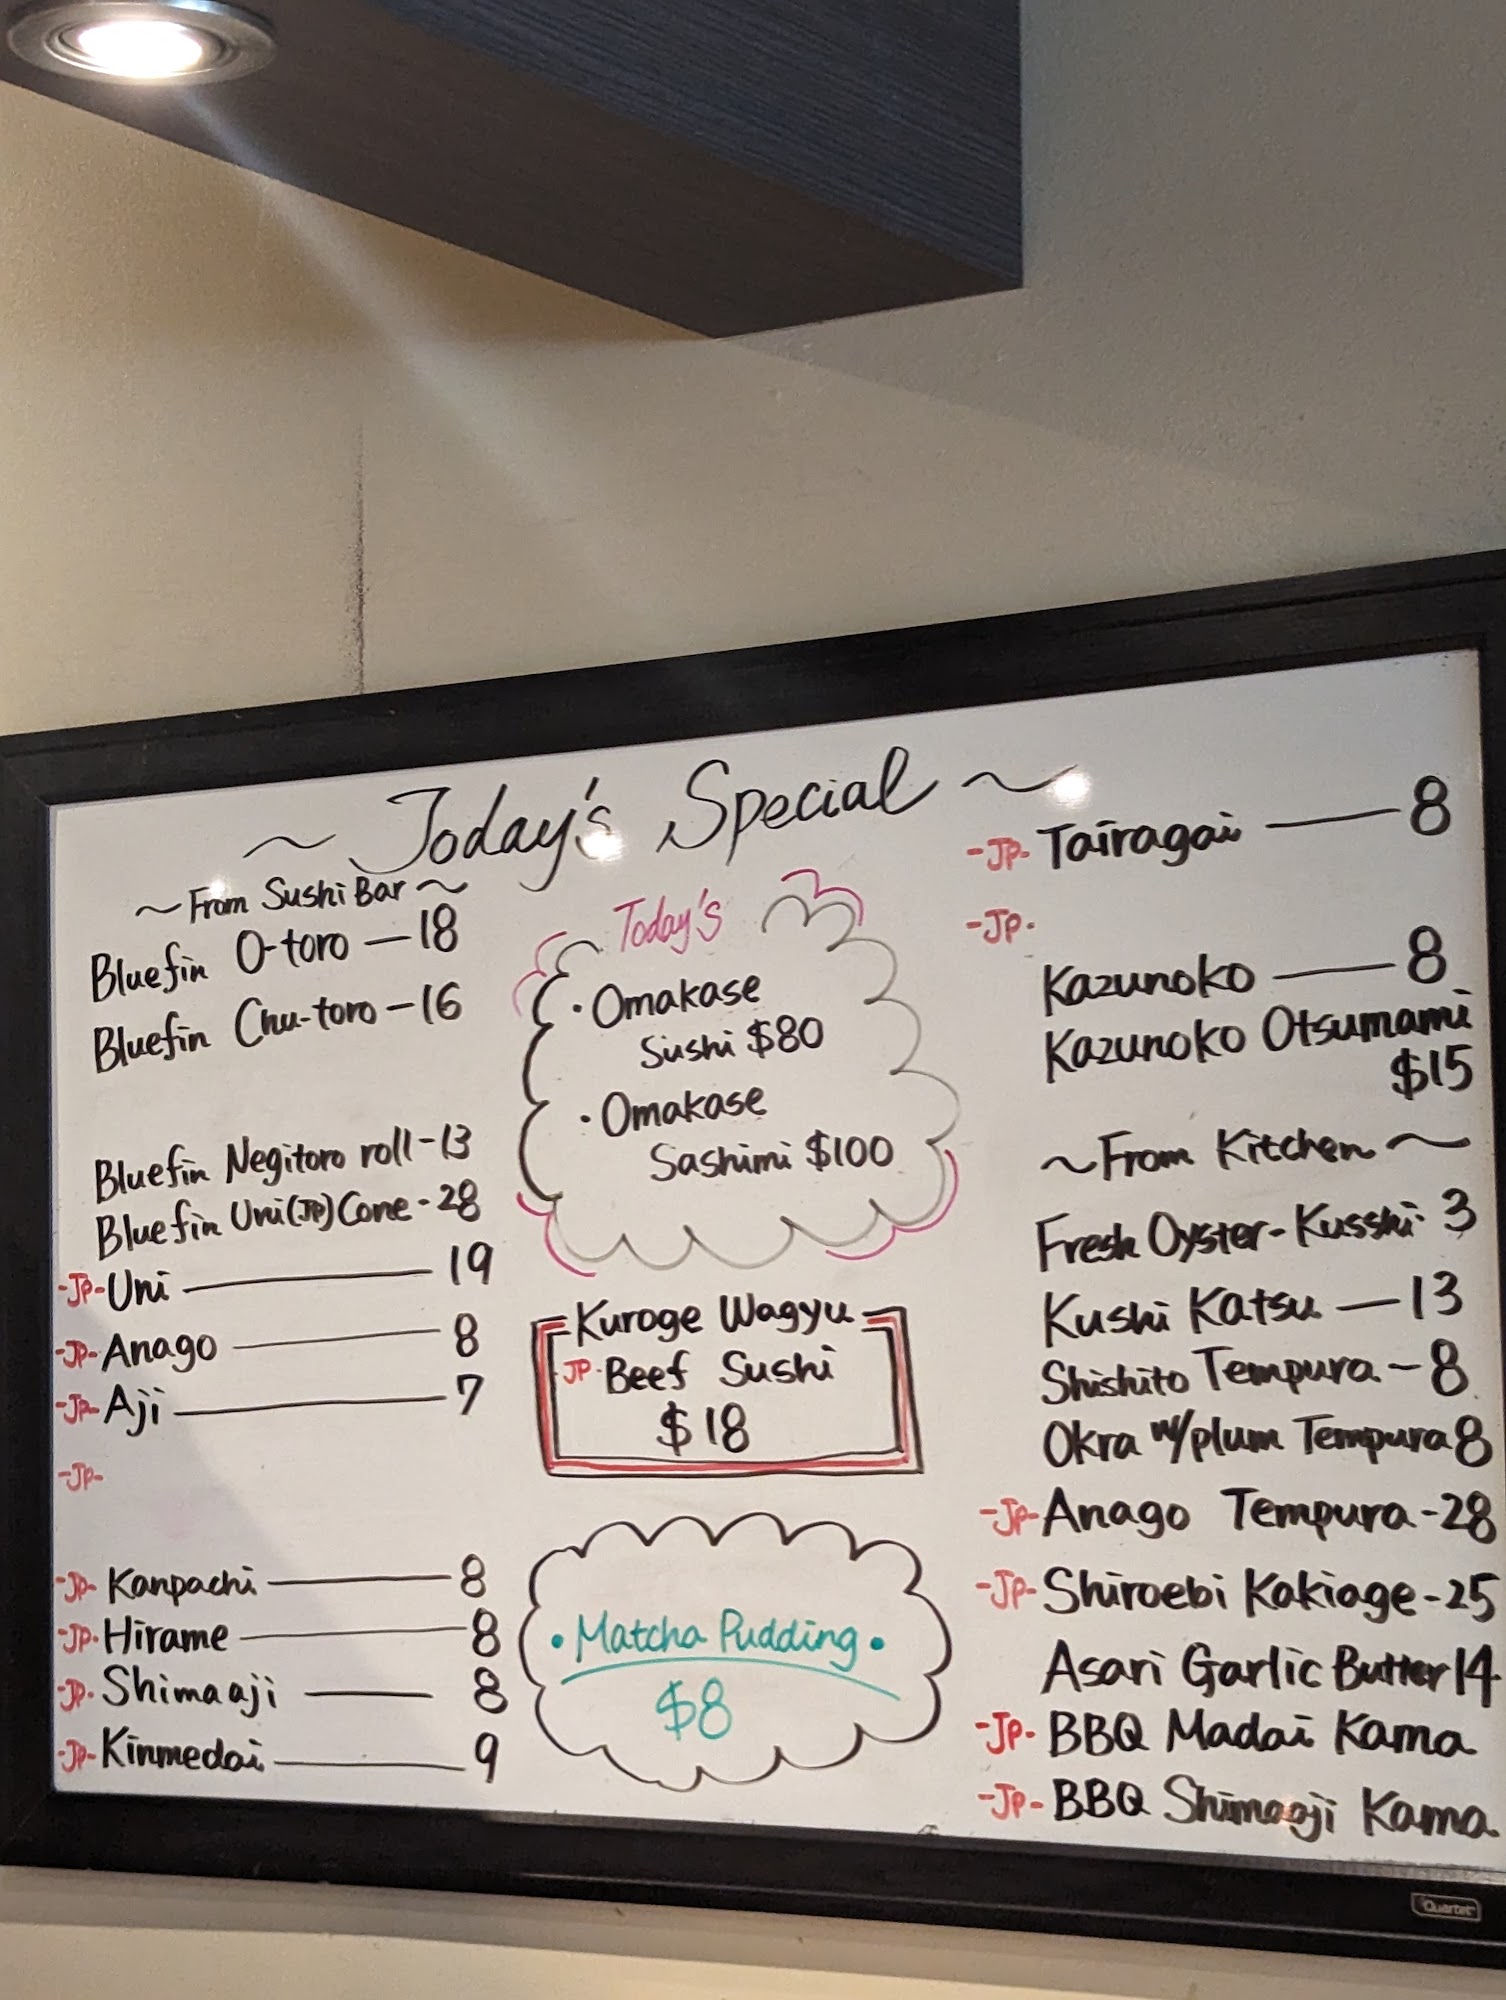 ~ Today's Special ~
~From Sushi Bar~
Bluefin O-toro — 18
Bluefin Chu-toro — 16
Bluefin Negitoro roll - 13
Bluefin Uni(JP) Cone - 28
-JP- Uni — 19
-JP- Anago — 8
-JP- Aji — 7
-JP-
-JP- Kanpachi — 8
-JP- Hirame — 8
-JP- Shimaaji — 8
-JP- Kinmedai — 9
Today's
· Omakase
Sushi $80
· Omakase
Sashimi $100
Kuroge Wagyu
JP· Beef Sushi
$18
• Matcha Pudding •
$8
-JP- Tairagai — 8
-JP-
Kazunoko — 8
Kazunoko Otsumami
$15
~From Kitchen~
Fresh Oyster - Kusshi · 3
Kushi Katsu — 13
Shishito Tempura - 8
Okra w/plum Tempura 8
-JP- Anago Tempura - 28
-JP- Shiroebi Kakiage - 25
Asari Garlic Butter 14
-JP- BBQ Madai Kama
-JP- BBQ Shimaaji Kama
Quartet